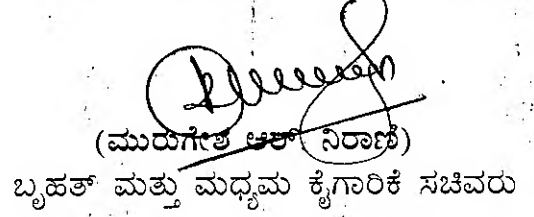 (ಮುರುಗೇಶ ಆರ್ ನಿರಾಣಿ)
ಬೃಹತ್ ಮತ್ತು ಮಧ್ಯಮ ಕೈಗಾರಿಕೆ ಸಚಿವರು